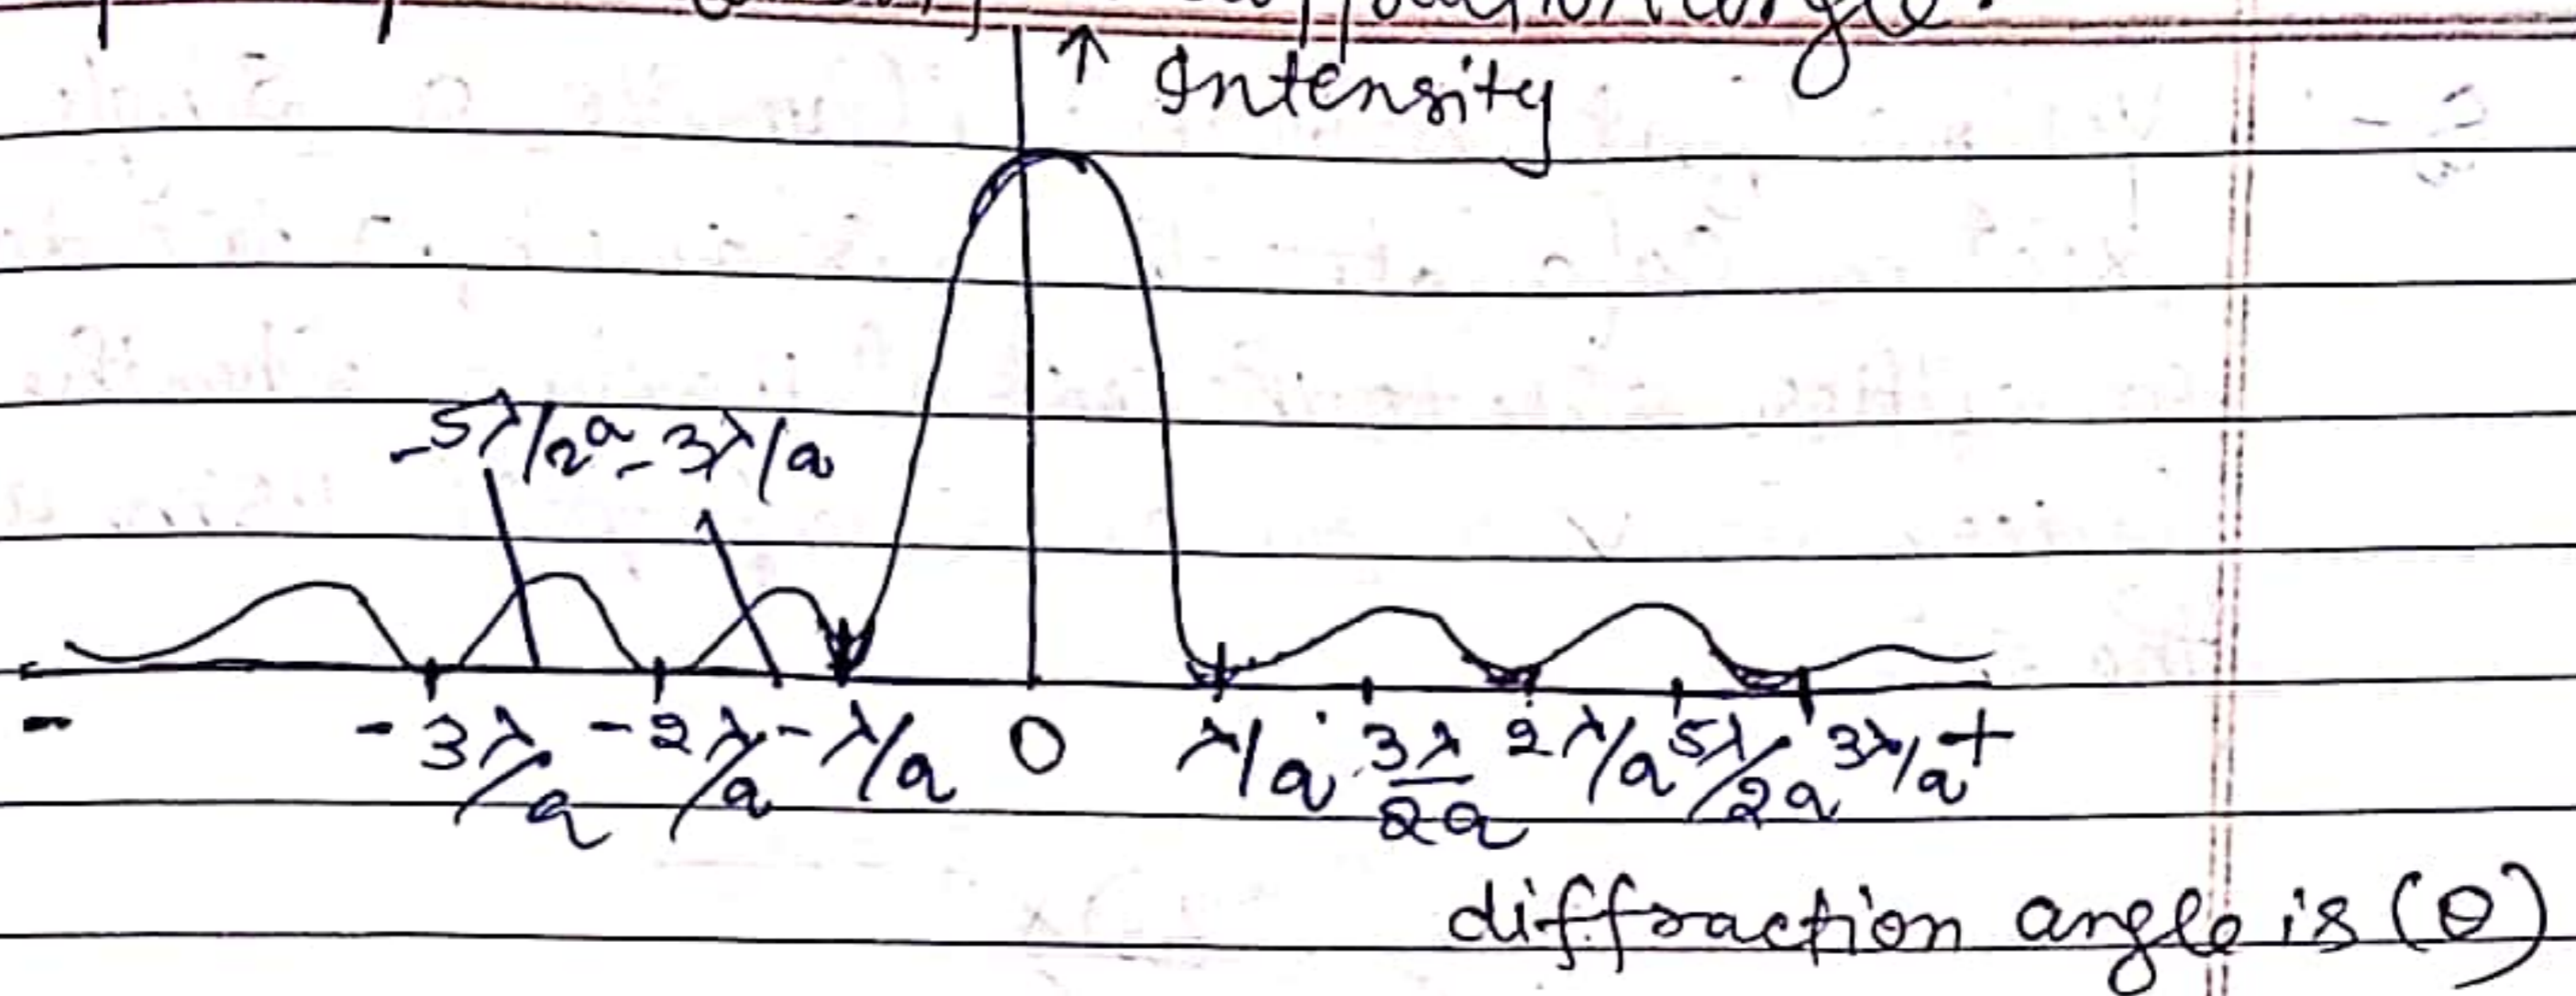 angle.
↑ Intensity
-5λ/2a -3λ/a
- -3λ/a -2λ/a -λ/a 0 λ/a 3λ/2a 2λ/a 5λ/2a 3λ/a +
diffraction angle is (θ)